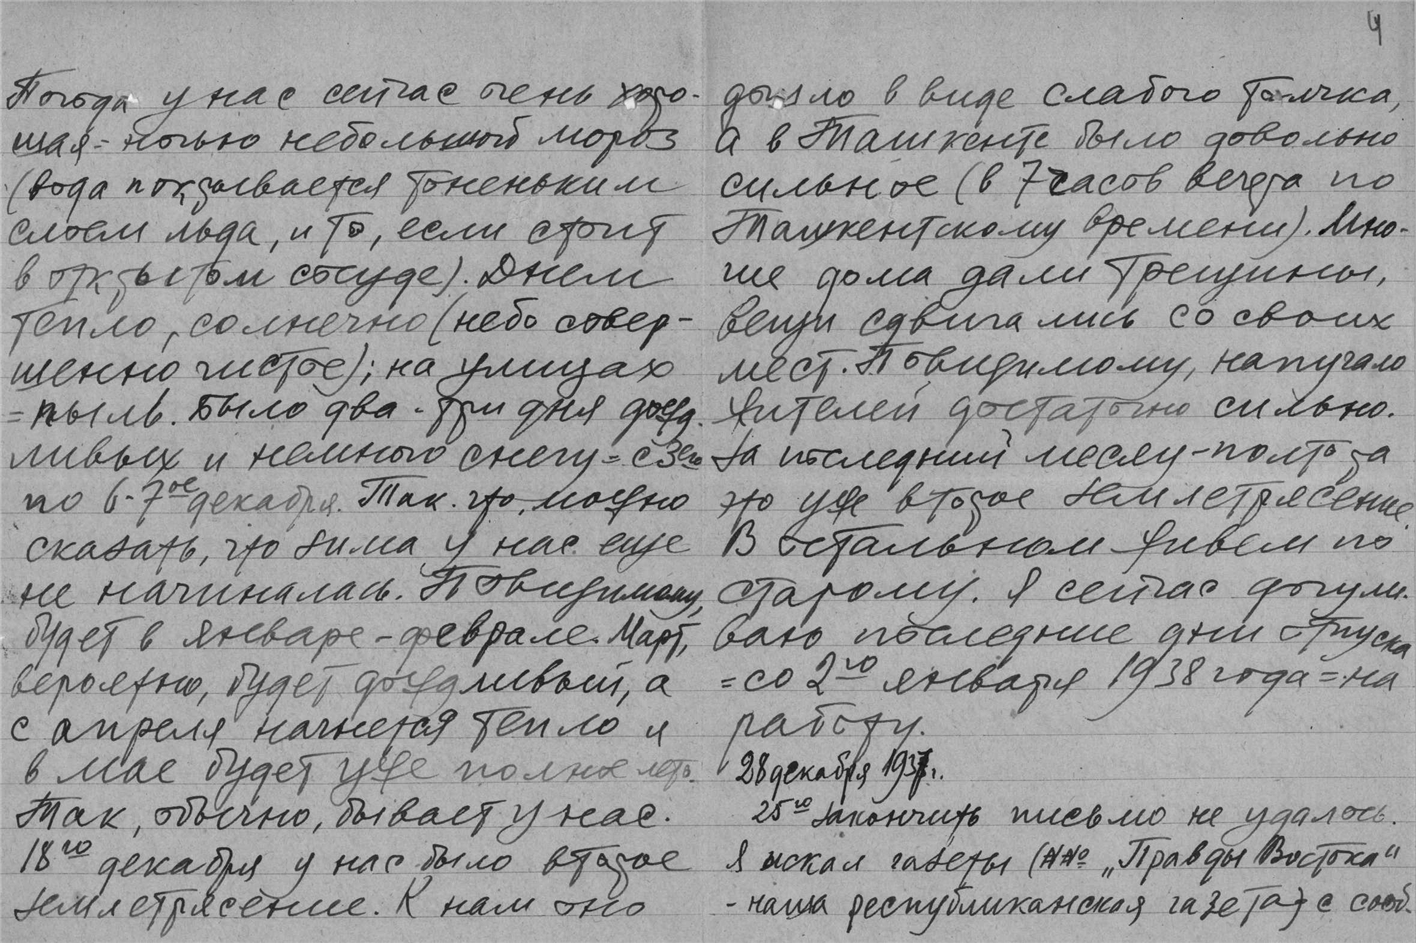 Погода у нас сейчас очень хоро-
шая - ночью небольшой мороз
(вода покрывается тоненьким
слоем льда, и то, если стоит
в открытом сосуде). Днем
тепло, солнечно (небо совер-
шенно чистое); на улицах
= пыль. Было два - три дня дожд.
ливых и немного снегу = с 3его
по 6-7ое декабря. Так. что, можно
сказать, что зима у нас еще
не начиналась. Повидимому,
будет в январе - феврале. Март,
вероятно, будет дождливый, а
с апреля начнется тепло и
в мае будет уже полное лето.
Так, обычно, бывает у нас.
18го декабря у нас было второе
землетрясение. К нам оно
4
дошло в виде слабого толчка,
а в Ташкенте было довольно
сильное (в 7 часов вечера по
Ташкентскому времени). Мно-
гие дома дали трещины,
вещи сдвигались со своих
мест. Повидимому, напугало
жителей достаточно сильно.
За последний месяц - полтора
это уже второе землетрясение.
В остальном живем по
старому. Я сейчас догули.
ваю последние дни отпуска
= со 2го января 1938 года = на
работу.
28 декабря 1937г.
25го закончить письмо не удалось.
Я искал газеты (№№ „Правды Востока“
- наша республиканская газета) с сооб.